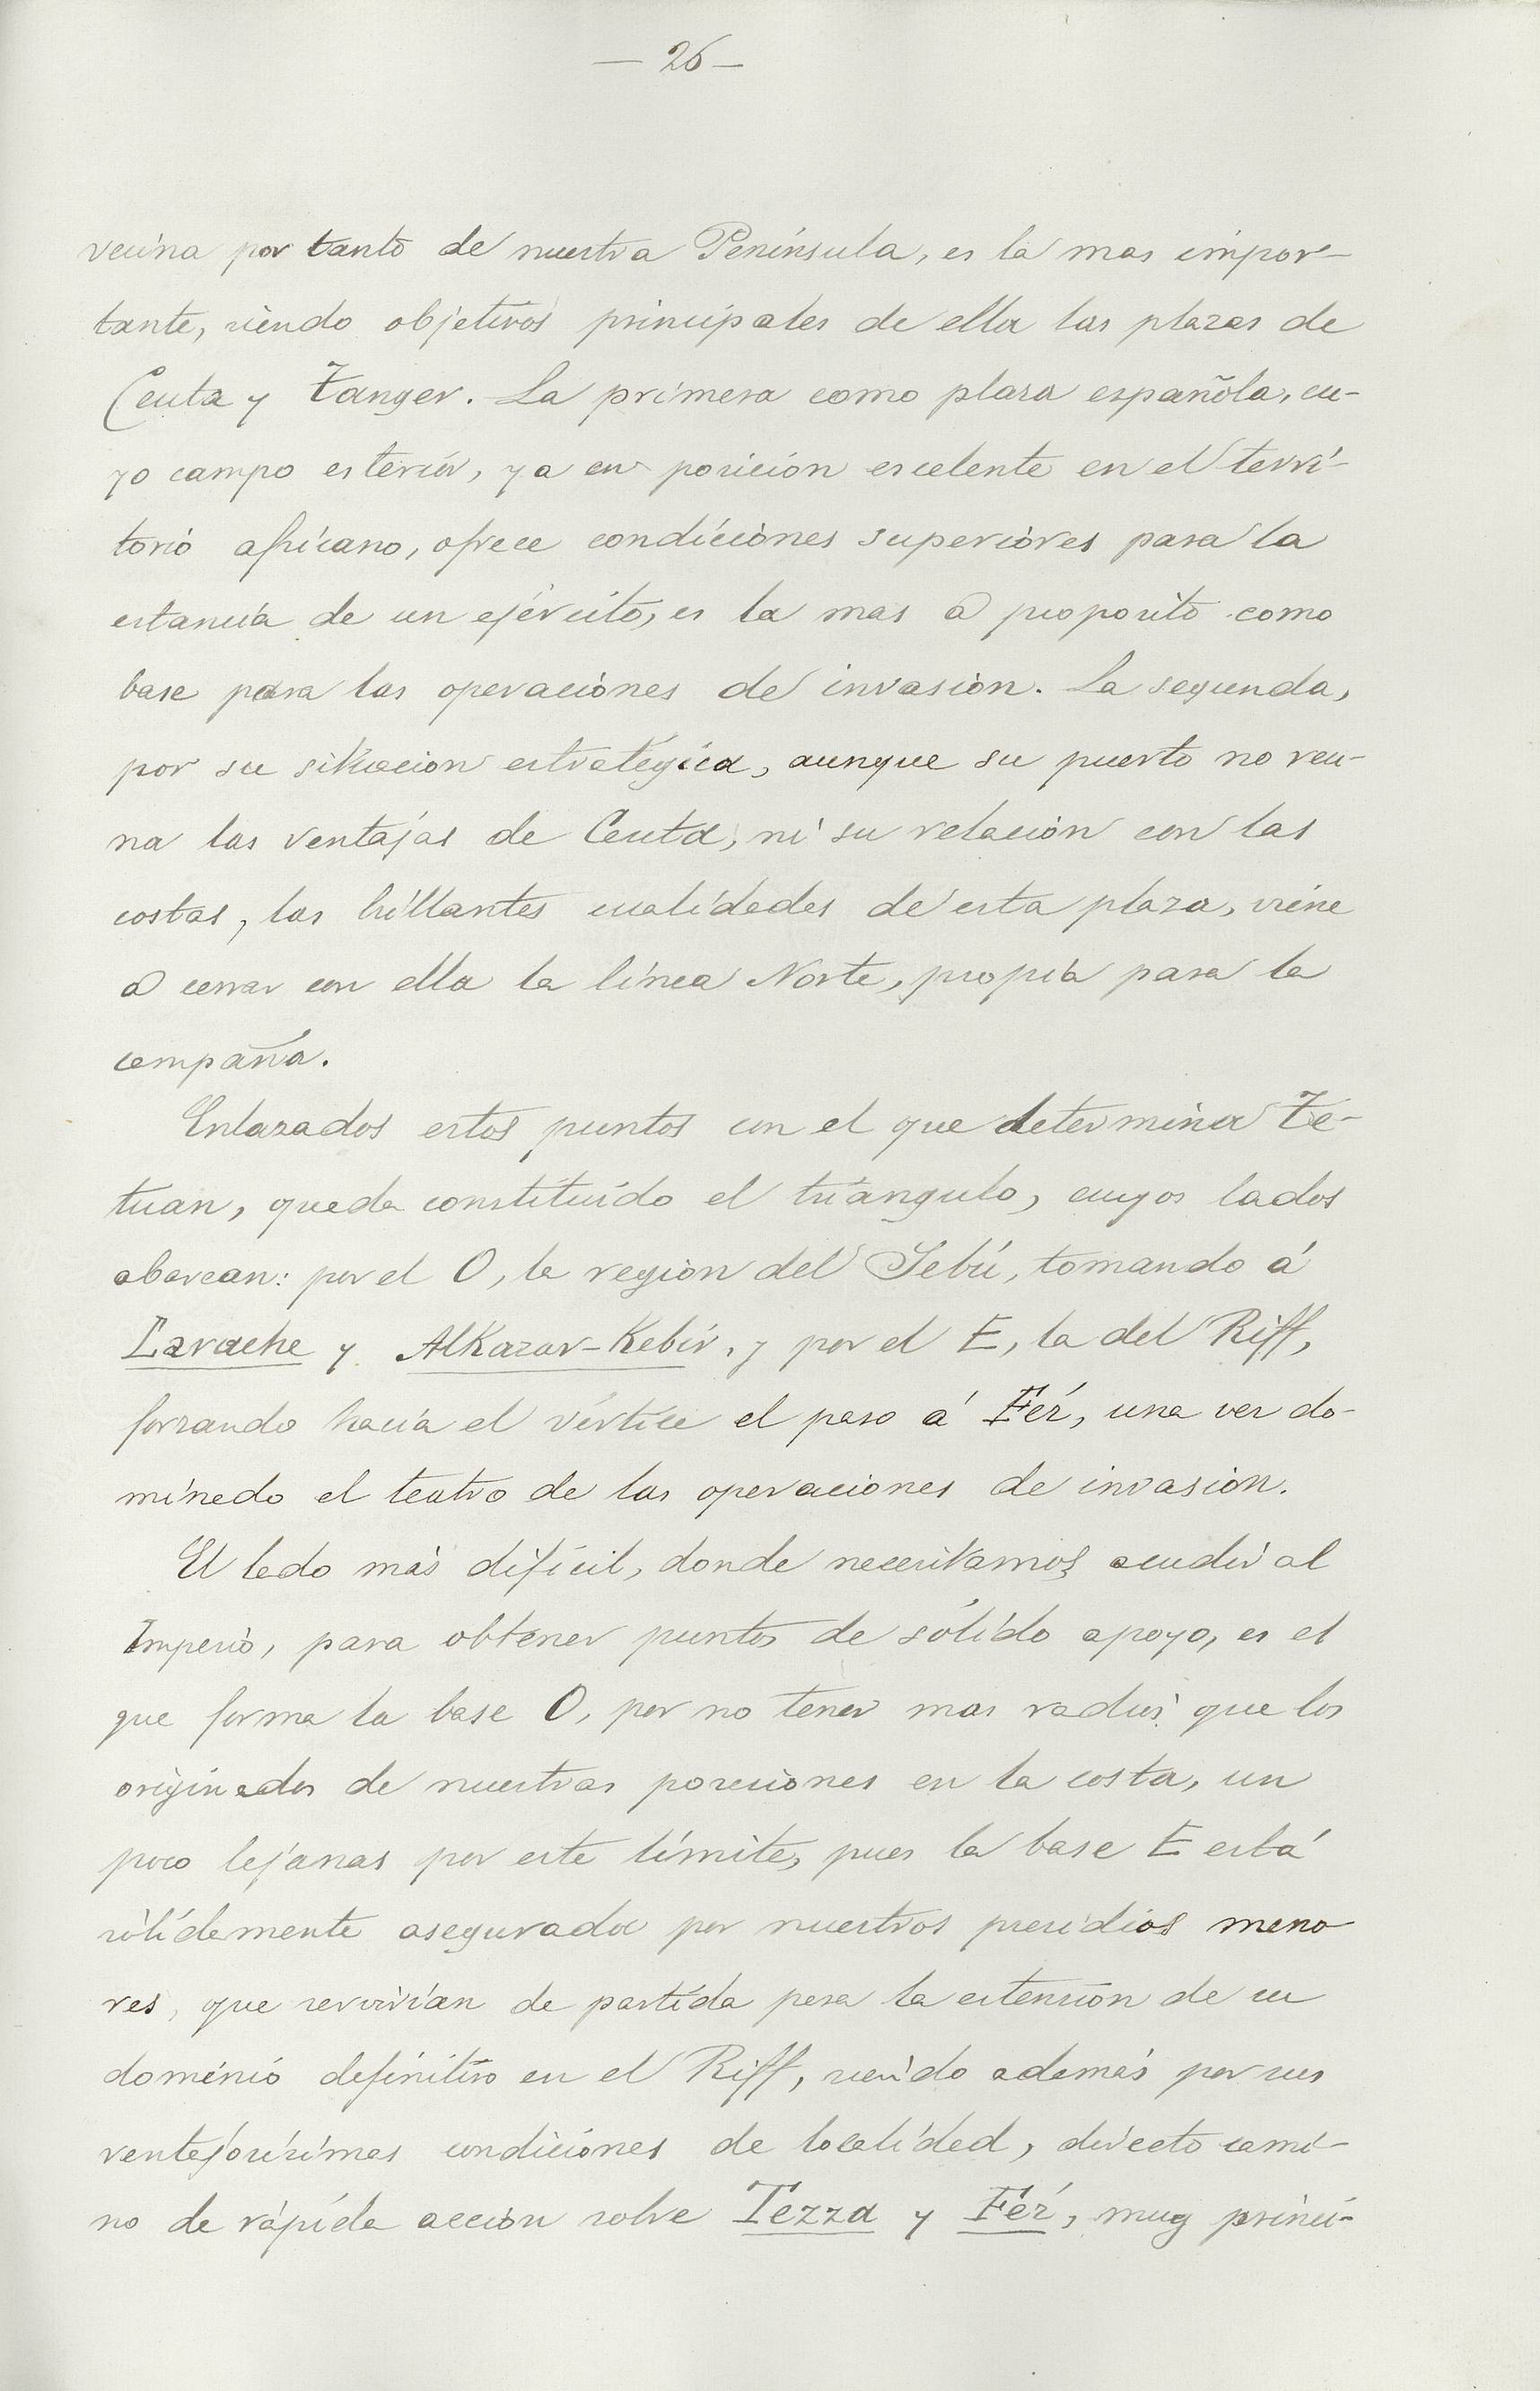 — 26 —
vecina por tanto de nuestra Península, es la mas impor-
tante, siendo objetivos principales de ella las plazas de
Ceuta y Tanger. La primera como plaza española, cu-
yo campo esterior, ya en posición escelente en el terri-
torio africano, ofrece condiciones superiores para la
estancia de un ejército, es la mas a proposito como
base para las operaciones de invasión. La segunda,
por su situacion estratégica, aunque su puerto no reu-
na las ventajas de Ceuta, ni su relación con las
costas, las brillantes cualidades de esta plaza, viene
a cerrar con ella la línea Norte, propia para la
campaña.
Enlazados estos puntos con el que determina Te-
tuan, queda constituido el triángulo, cuyos lados
abarcan: por el O, la región del Sebú, tomando á
Larache y Alkazar-Kebir, y por el E, la del Riff,
forzando hacia el vértice el paso á Féz, una vez do-
minado el teatro de las operaciones de invasión.
El lado más difícil, donde necesitamos acudir al
Imperio, para obtener puntos de sólido apoyo, es el
que forma la base O, por no tener mas radios que los
originados de nuestras posesiones en la costa, un
poco lejanas por este límite, pues la base E está
sólidamente asegurada por nuestros presidios meno
res, que servirían de partida para la estensión de su
dominio definitivo en el Riff, siendo además por sus
ventajosísimas condiciones de localidad, directo cami-
no de rápida acción sobre Tezza y Féz, muy princi-